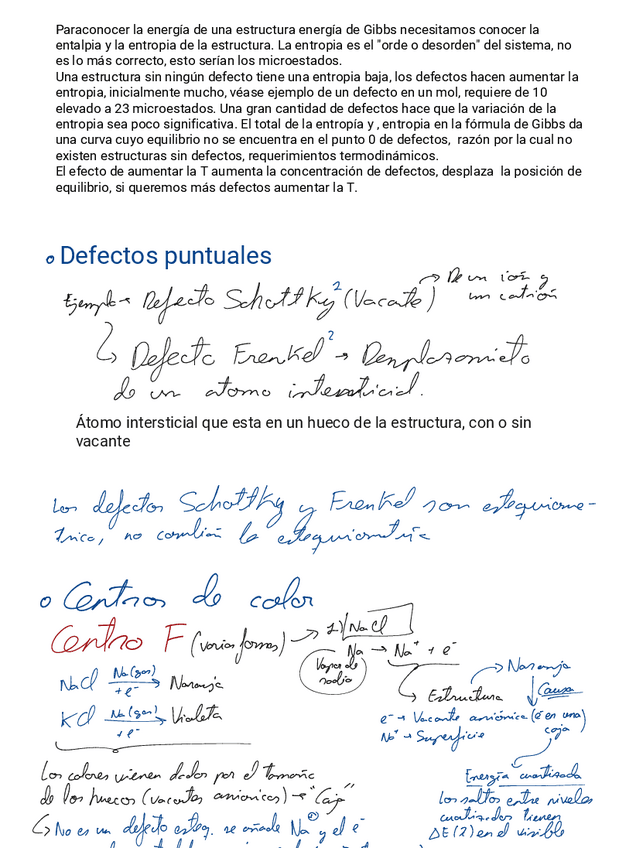 Paraconocer la energía de una estructura energía de Gibbs necesitamos conocer la
entalpia y la entropia de la estructura. La entropia es el "orde o desorden" del sistema, no
es lo más correcto, esto serían los microestados.
Una estructura sin ningún defecto tiene una entropia baja, los defectos hacen aumentar la
entropia, inicialmente mucho, véase ejemplo de un defecto en un mol, requiere de 10
elevado a 23 microestados. Una gran cantidad de defectos hace que la variación de la
entropia sea poco significativa. El total de la entropía y , entropia en la fórmula de Gibbs da
una curva cuyo equilibrio no se encuentra en el punto 0 de defectos, razón por la cual no
existen estructuras sin defectos, requerimientos termodinámicos.
El efecto de aumentar la T aumenta la concentración de defectos, desplaza la posición de
equilibrio, si queremos más defectos aumentar la T.
Defectos puntuales
Ejemplo → Defecto Schottky² (Vacante) → De un ion y
un catión
↳ Defecto Frenkel² → Desplazamieto
de un atomo intersticial.
Átomo intersticial que esta en un hueco de la estructura, con o sin
vacante
Los defectos Schottky y Frenkel son estequiome-
trico, no cambian la estequiometría
Centros de color
Centro F (varias formas) → 1) NaCl
Na → Na⁺ + e⁻
Vapor de
sodio
NaCl Na(gas) + e⁻ → Naranja
KCl Na(gas) + e⁻ → Violeta
↳ Estructura → Naranja
↓ Causa
e⁻ → Vacante aniónica (e⁻ en una)
caja
Na⁺ → Superficie
Energía cuantizada
Los saltos entre niveles
cuantizados tienen
ΔE(2) en el visible
Los colores vienen dados por el tamaño
de los huecos (vacantes anionicas) → "Caja"
↳ No es un defecto esteq. se añade Na⊕ y el e⁻